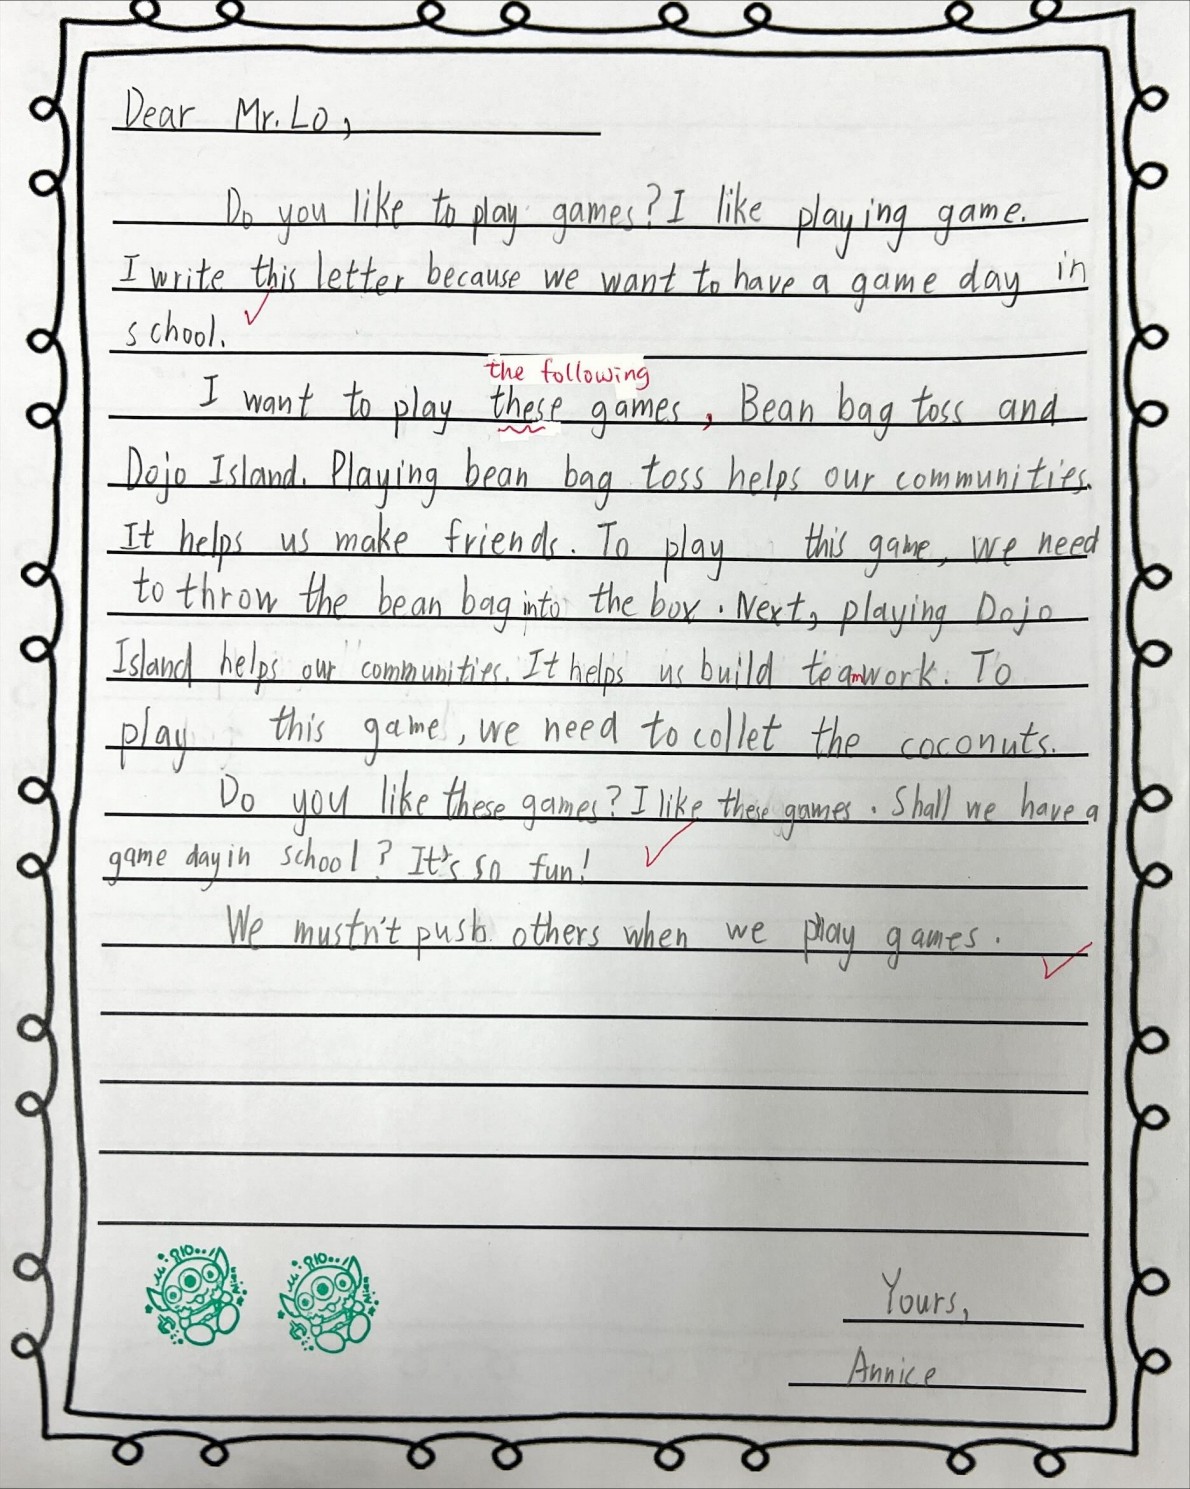 Dear Mr. Lo,
Do you like to play games? I like playing game.
I write this letter because we want to have a game day in
school.
the following
I want to play these games, Bean bag toss and
Dojo Island. Playing bean bag toss helps our communities.
It helps us make friends. To play this game, we need
to throw the bean bag into the box. Next, playing Dojo
Island helps our communities. It helps us build teamwork. To
play this game, we need to collet the coconuts.
Do you like these games? I like these games. Shall we have a
game day in school? It's so fun!
We mustn't push others when we play games.
Yours,
Annice